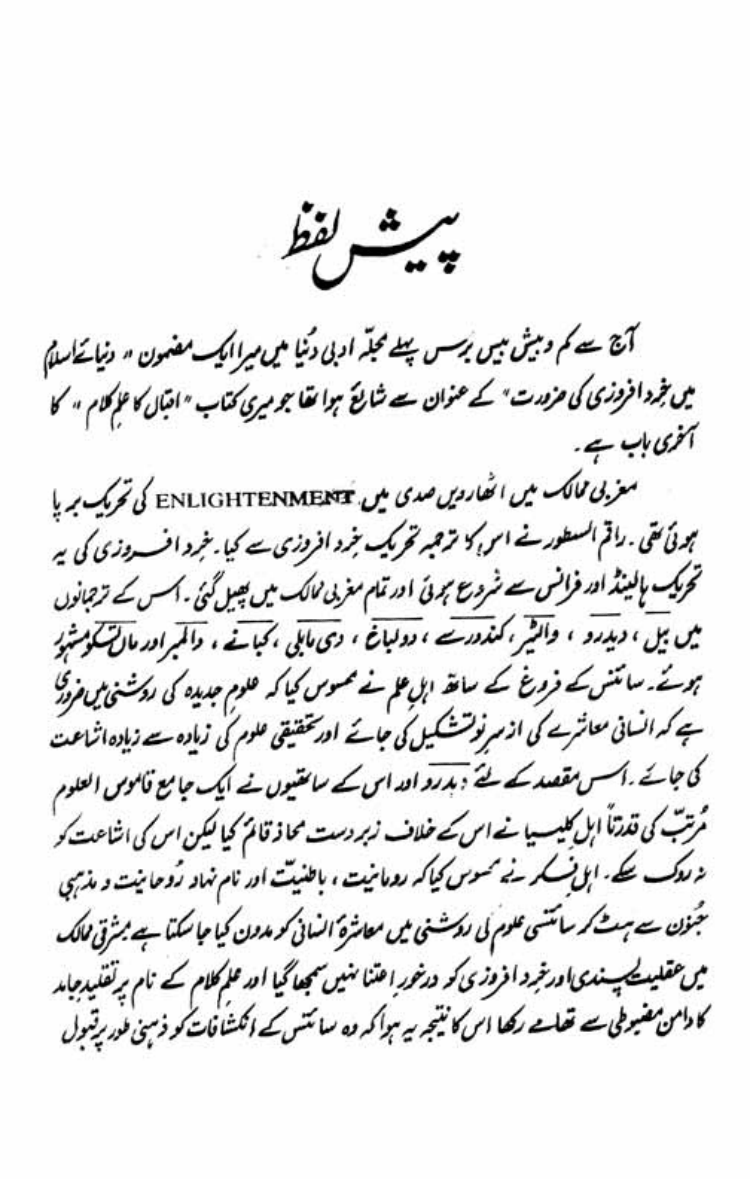 پیش لفظ
آج سے کم و بیش بیس برس پہلے مجلّہ ادبی دُنیا میں میرا ایک مضمون "دنیائے اسلام
میں خِرد افروزی کی ضرورت" کے عنوان سے شائع ہوا تھا جو میری کتاب "اقبال کا علمِ کلام" کا
آخری باب ہے۔
مغربی ممالک میں اٹھارویں صدی میں ENLIGHTENMENT کی تحریک برپا
ہوئی تھی۔ راقم السطور نے اس کا ترجمہ تحریکِ خِرد افروزی سے کیا۔ خِرد افروزی کی یہ
تحریک ہالینڈ اور فرانس سے شروع ہوئی اور تمام مغربی ممالک میں پھیل گئی۔ اس کے ترجمانوں
میں بیل، دیدرو، والٹیر، کندورسے، دولباخ، دی مابلی، کبانے، دالمبر اور ماں تسکو مشہور
ہوئے۔ سائنس کے فروغ کے ساتھ اہلِ علم نے محسوس کیا کہ علومِ جدیدہ کی روشنی میں ضروری
ہے کہ انسانی معاشرے کی از سرِ نو تشکیل کی جائے اور تحقیقی علوم کی زیادہ سے زیادہ اشاعت
کی جائے۔ اس مقصد کے لئے دیدرو اور اس کے ساتھیوں نے ایک جامع قاموس العلوم
مُرتّب کی قدرتاً اہلِ کلیسیا نے اس کے خلاف زبردست محاذ قائم کیا لیکن اس کی اشاعت کو
نہ روک سکے۔ اہلِ فکر نے محسوس کیا کہ رومانیت، باطنیّت اور نام نہاد رُوحانیت و مذہبی
جنُون سے ہٹ کر سائنسی علوم کی روشنی میں معاشرۂ انسانی کو مدون کیا جا سکتا ہے مشرقی ممالک
میں عقلیت پسندی اور خِرد افروزی کو درخورِ اعتنا نہیں سمجھا گیا اور علمِ کلام کے نام پر تقلیدِ جامد
کا دامن مضبوطی سے تھامے رکھا اس کا نتیجہ یہ ہوا کہ وہ سائنس کے انکشافات کو ذہنی طور پر قبول